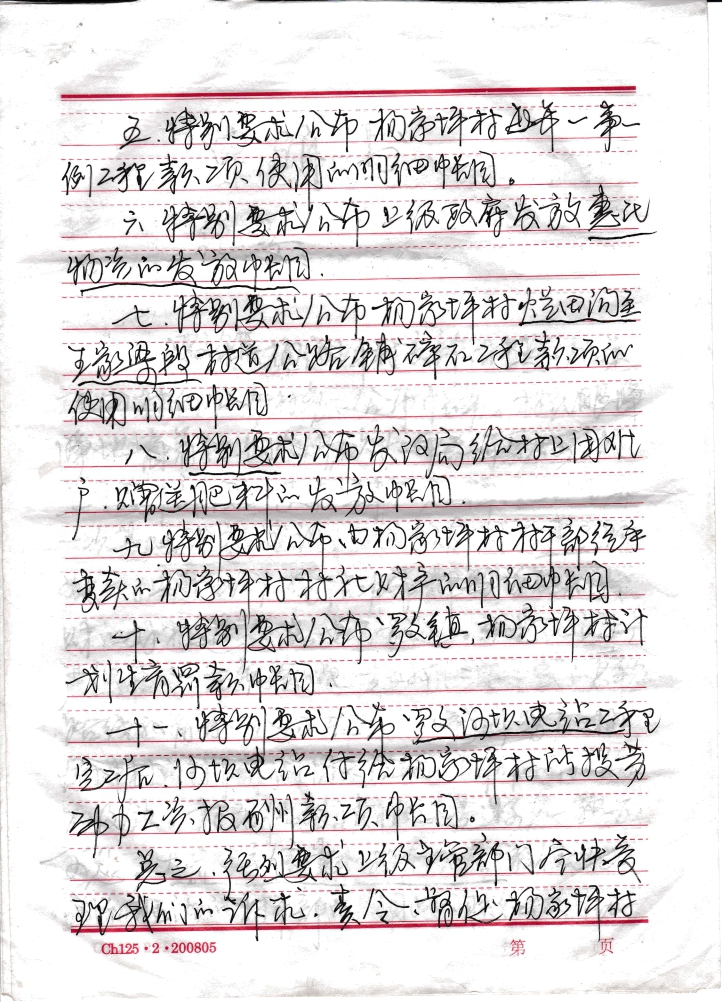 五.特别要求公布杨家坪村近年一事一
例工程款项使用的明细帐目。
六.特别要求公布上级政府发放惠比
物资的发放帐目.
七.特别要求公布杨家坪村烂田沟至
王家梁段村道公路铺碎石工程款项的
使用明细帐目.
八.特别要求公布发改局给村上困难
户.赠送肥料的发放帐目.
九.特别要求公布.由杨家坪村村干部经手
变卖的杨家坪村村社林的明细帐目.
十.特别要求公布罗文镇.杨家坪村计
划生育罚款帐目.
十一.特别要求公布罗文河坝电站工程
完工后.河坝电站付给杨家坪村所投劳
动力工资报酬款项帐目。
总之.强烈要求上级主管部门尽快受
理我们的诉求.责令.督促杨家坪村
Ch125·2·200805
第 页